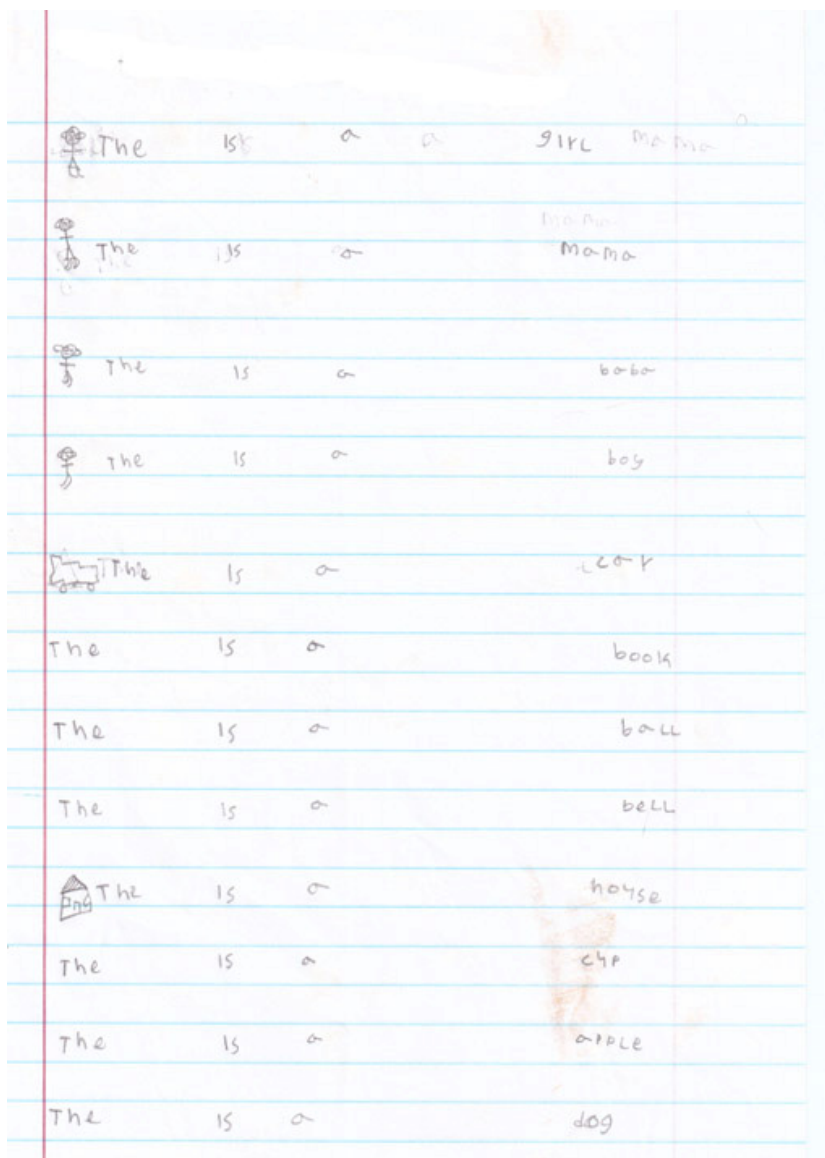 The Is a a girl mama
mama
The Is a mama
The Is a baba
The Is a boy
The Is a car
The Is a book
The Is a ball
The Is a bell
The Is a house
The Is a cup
The Is a apple
The Is a dog